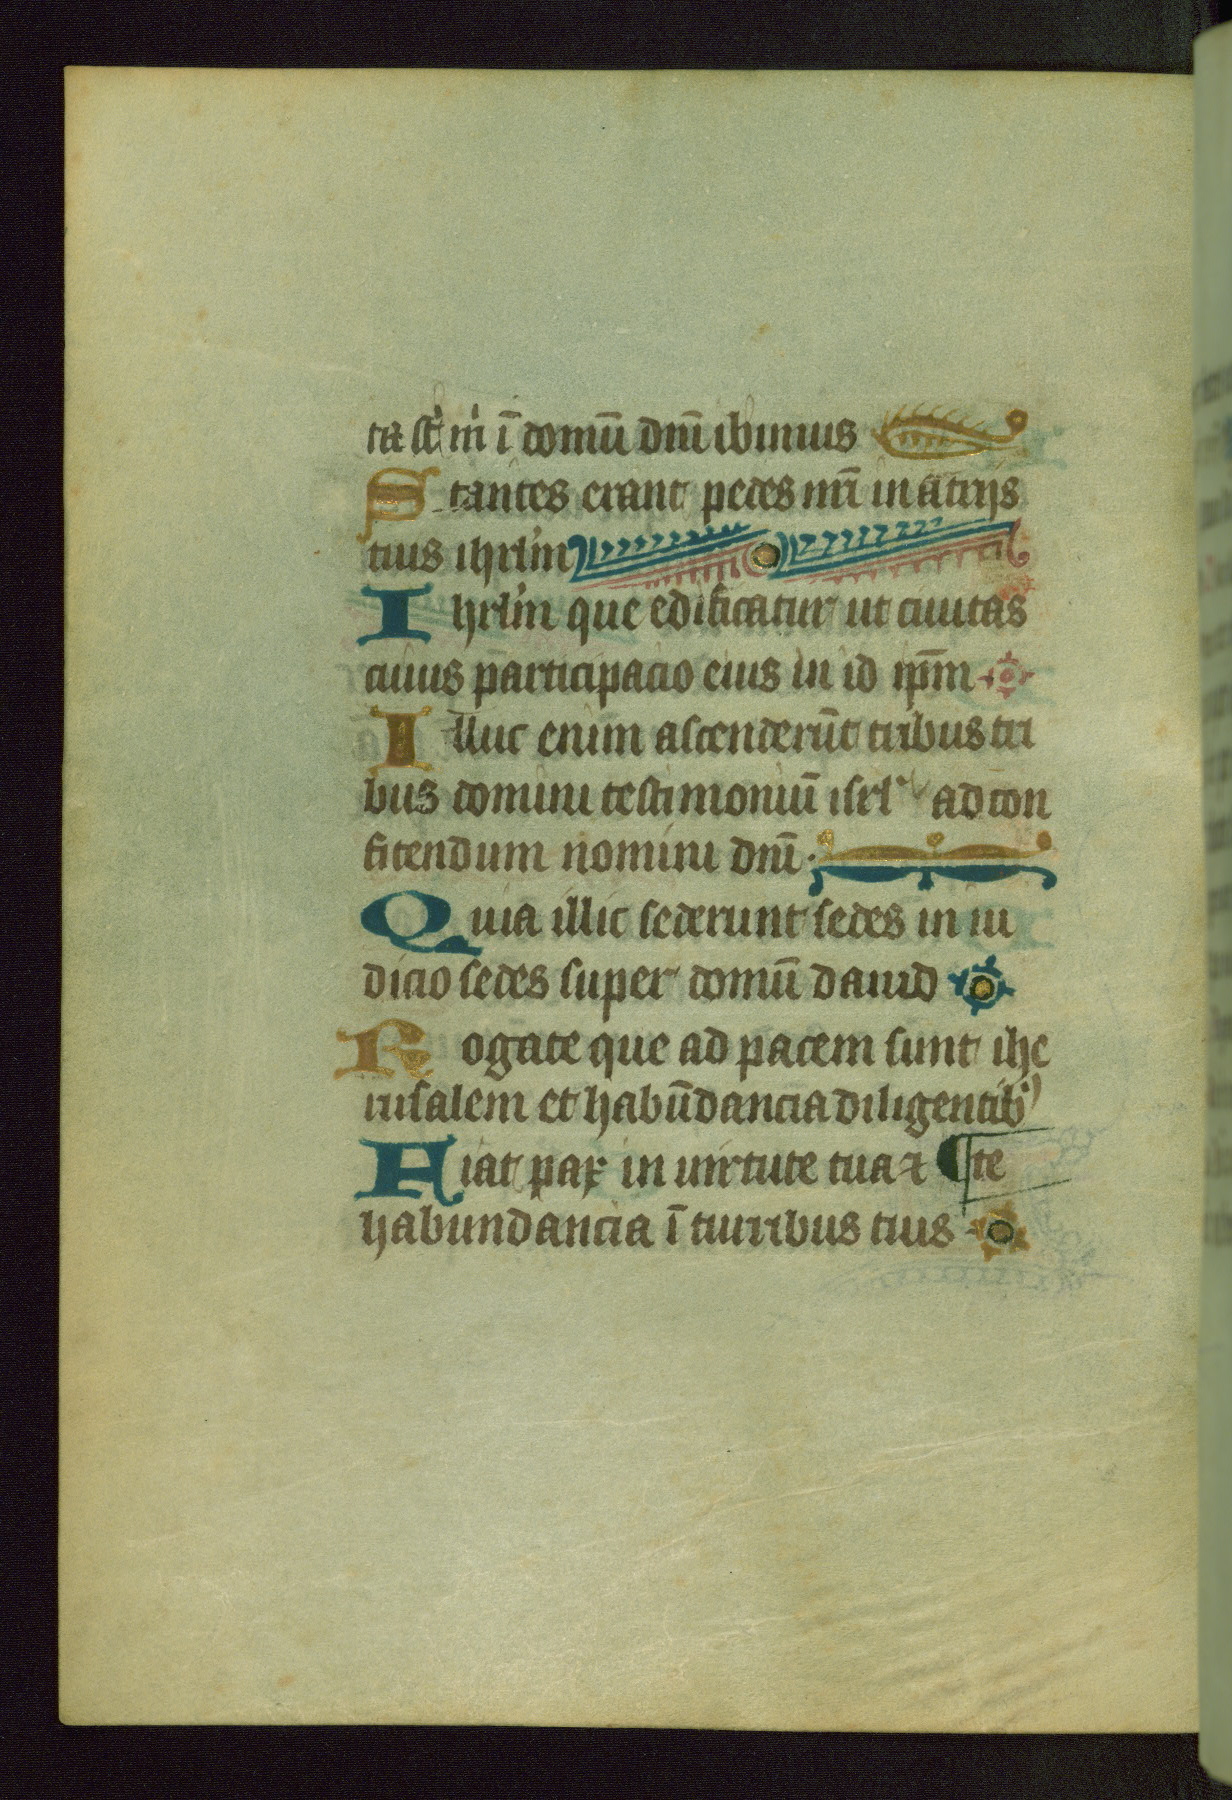 ta st m i domū dnī ibimus
Stantes erant pedes nrī in atrijs
tuis ihrlm
Ihrlm que edificatur ut ciuitas
cuius participacio eius in id ipm̄
Illuc enim ascenderūt tribus tri
bus domini testimoniū isrl ad con
fitendum nomini dnī
Quia illic sederunt sedes in iu
dicio sedes super domū dauid
Rogate que ad pacem sunt ihe
rusalem et habūdancia diligentib
Fiat pax in uirtute tua ⁊ ¶ te
habundancia ī turribus tuis